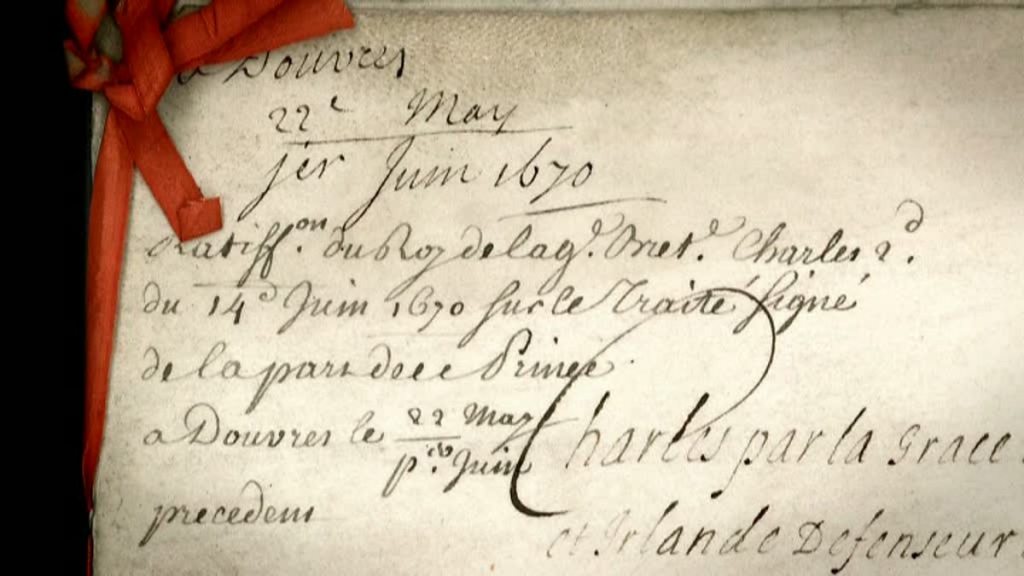 a Douvres
22e May
jer Juin 1670
Ratiffon. du Roy de la gr. Bret.e Charles 2d.
du 14e Juin 1670 sur le Traité signé
de la part de ce Prince
a Douvres le 22 May
per. Juin
precedent
Charles par la Grace
et Irlande Defenseur